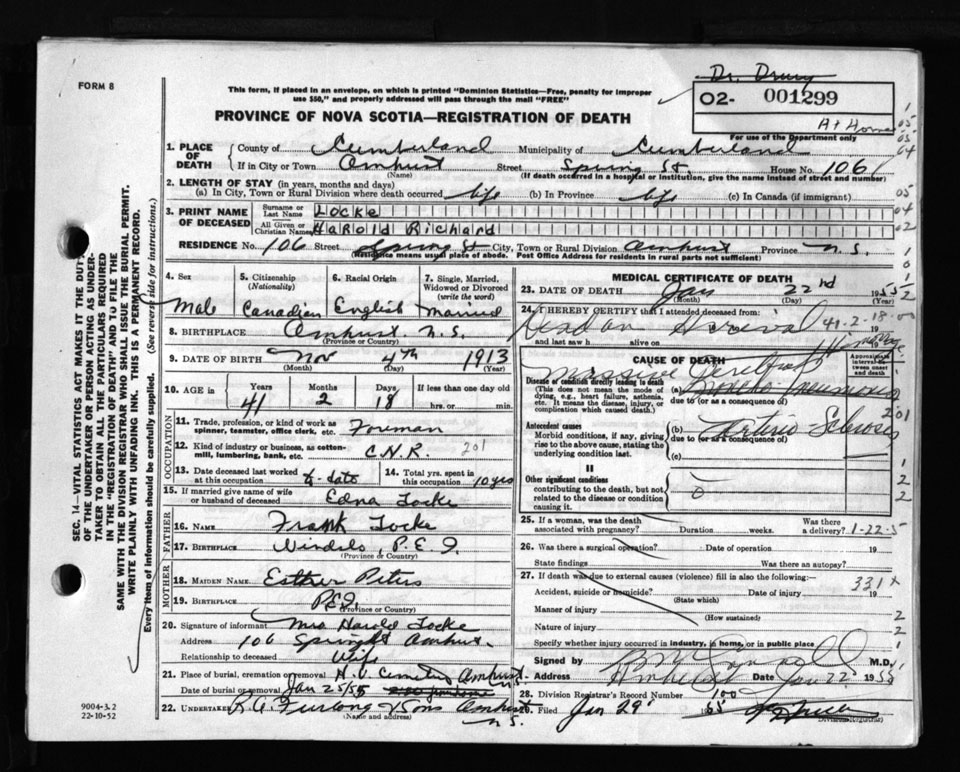 FORM 8
This form, if placed in an envelope, on which is printed "Dominion Statistics—Free, penalty for improper
use $50," and properly addressed will pass through the mail "FREE"
PROVINCE OF NOVA SCOTIA—REGISTRATION OF DEATH
Dr. Drury
02- 001299
At Home
For use of the Department only
1. PLACE OF DEATH County of Cumberland Municipality of Cumberland
If in City or Town Amhurst Street Spring St. House No. 106
(Name) (If death occurred in a hospital or institution, give the name instead of street and number)
2. LENGTH OF STAY (in years, months and days)
(a) In City, Town or Rural Division where death occurred life (b) In Province life (c) In Canada (if immigrant)
3. PRINT NAME OF DECEASED Surname or Last Name LOCKE
All Given or Christian Names HAROLD Richard
RESIDENCE No. 106 Street Spring St City, Town or Rural Division Amhurst Province N.S.
(Residence means usual place of abode. Post Office Address for residents in rural parts not sufficient)
4. Sex 5. Citizenship (Nationality) 6. Racial Origin 7. Single, Married, Widowed or Divorced (write the word)
Male Canadian English Married
8. BIRTHPLACE Amhurst N.S.
(Province or Country)
9. DATE OF BIRTH Nov 4th 1913
(Month) (Day) (Year)
10. AGE in Years Months Days If less than one day old
41 2 18 hrs. or min.
OCCUPATION
11. Trade, profession, or kind of work as spinner, teamster, office clerk, etc. Foreman
12. Kind of industry or business, as cotton-mill, lumbering, bank, etc. C.N.R. 201
13. Date deceased last worked at this occupation to date 14. Total yrs. spent in this occupation 10 yrs
15. If married give name of wife or husband of deceased Edna Locke
FATHER
16. NAME Frank Locke
17. BIRTHPLACE P.E.I.
(Province or Country)
MOTHER
18. MAIDEN NAME Esther Peters
19. BIRTHPLACE P.E.I.
(Province or Country)
20. Signature of informant Mrs Harold Locke
Address 106 Spring St Amhurst
Relationship to deceased Wife
21. Place of burial, cremation or removal Cemetery Amhurst
Date of burial or removal Jan 25/55
22. UNDERTAKER R.A. Furlong & Sons Amhurst N.S.
(Name and address)
MEDICAL CERTIFICATE OF DEATH
23. DATE OF DEATH Jan 22nd 1955
(Month) (Day) (Year)
24. I HEREBY CERTIFY that I attended deceased from:
Dead on Arrival 41-2-18
and last saw h alive on 19
CAUSE OF DEATH Approximate interval between onset and death
Massive Cerebral
I
Disease or condition directly leading to death (a)
(This does not mean the mode of dying, e.g., heart failure, asthenia, etc. It means the disease, injury, or complication which caused death.) due to (or as a consequence of)
201
Antecedent causes (b) Arterio Sclerosis
Morbid conditions, if any, giving rise to the above cause, stating the underlying condition last. due to (or as a consequence of)
(c)
II
Other significant conditions
contributing to the death, but not related to the disease or condition causing it.
25. If a woman, was the death associated with pregnancy? Duration weeks. Was there a delivery? 1-22-5
26. Was there a surgical operation? Date of operation 19
State findings Was there an autopsy?
27. If death was due to external causes (violence) fill in also the following:— 331X
Accident, suicide or homicide? Date of injury 19
(State which)
Manner of injury
(How sustained)
Nature of injury
Specify whether injury occurred in industry, in home, or in public place
Signed by M.D.
Address Amherst Jan 22 1955
28. Division Registrar's Record Number 100
29. Filed Jan 29 1955
Division Registrar
SEC. 14—VITAL STATISTICS ACT MAKES IT THE DUTY
OF THE UNDERTAKER OR PERSON ACTING AS UNDER-
TAKER TO OBTAIN ALL THE PARTICULARS REQUIRED
IN THE "REGISTRATION OF DEATH" AND TO FILE THE
SAME WITH THE DIVISION REGISTRAR WHO SHALL ISSUE THE BURIAL PERMIT.
WRITE PLAINLY WITH UNFADING INK. THIS IS A PERMANENT RECORD.
Every item of information should be carefully supplied. (See reverse side for instructions.)
9004-3.2
22-10-52